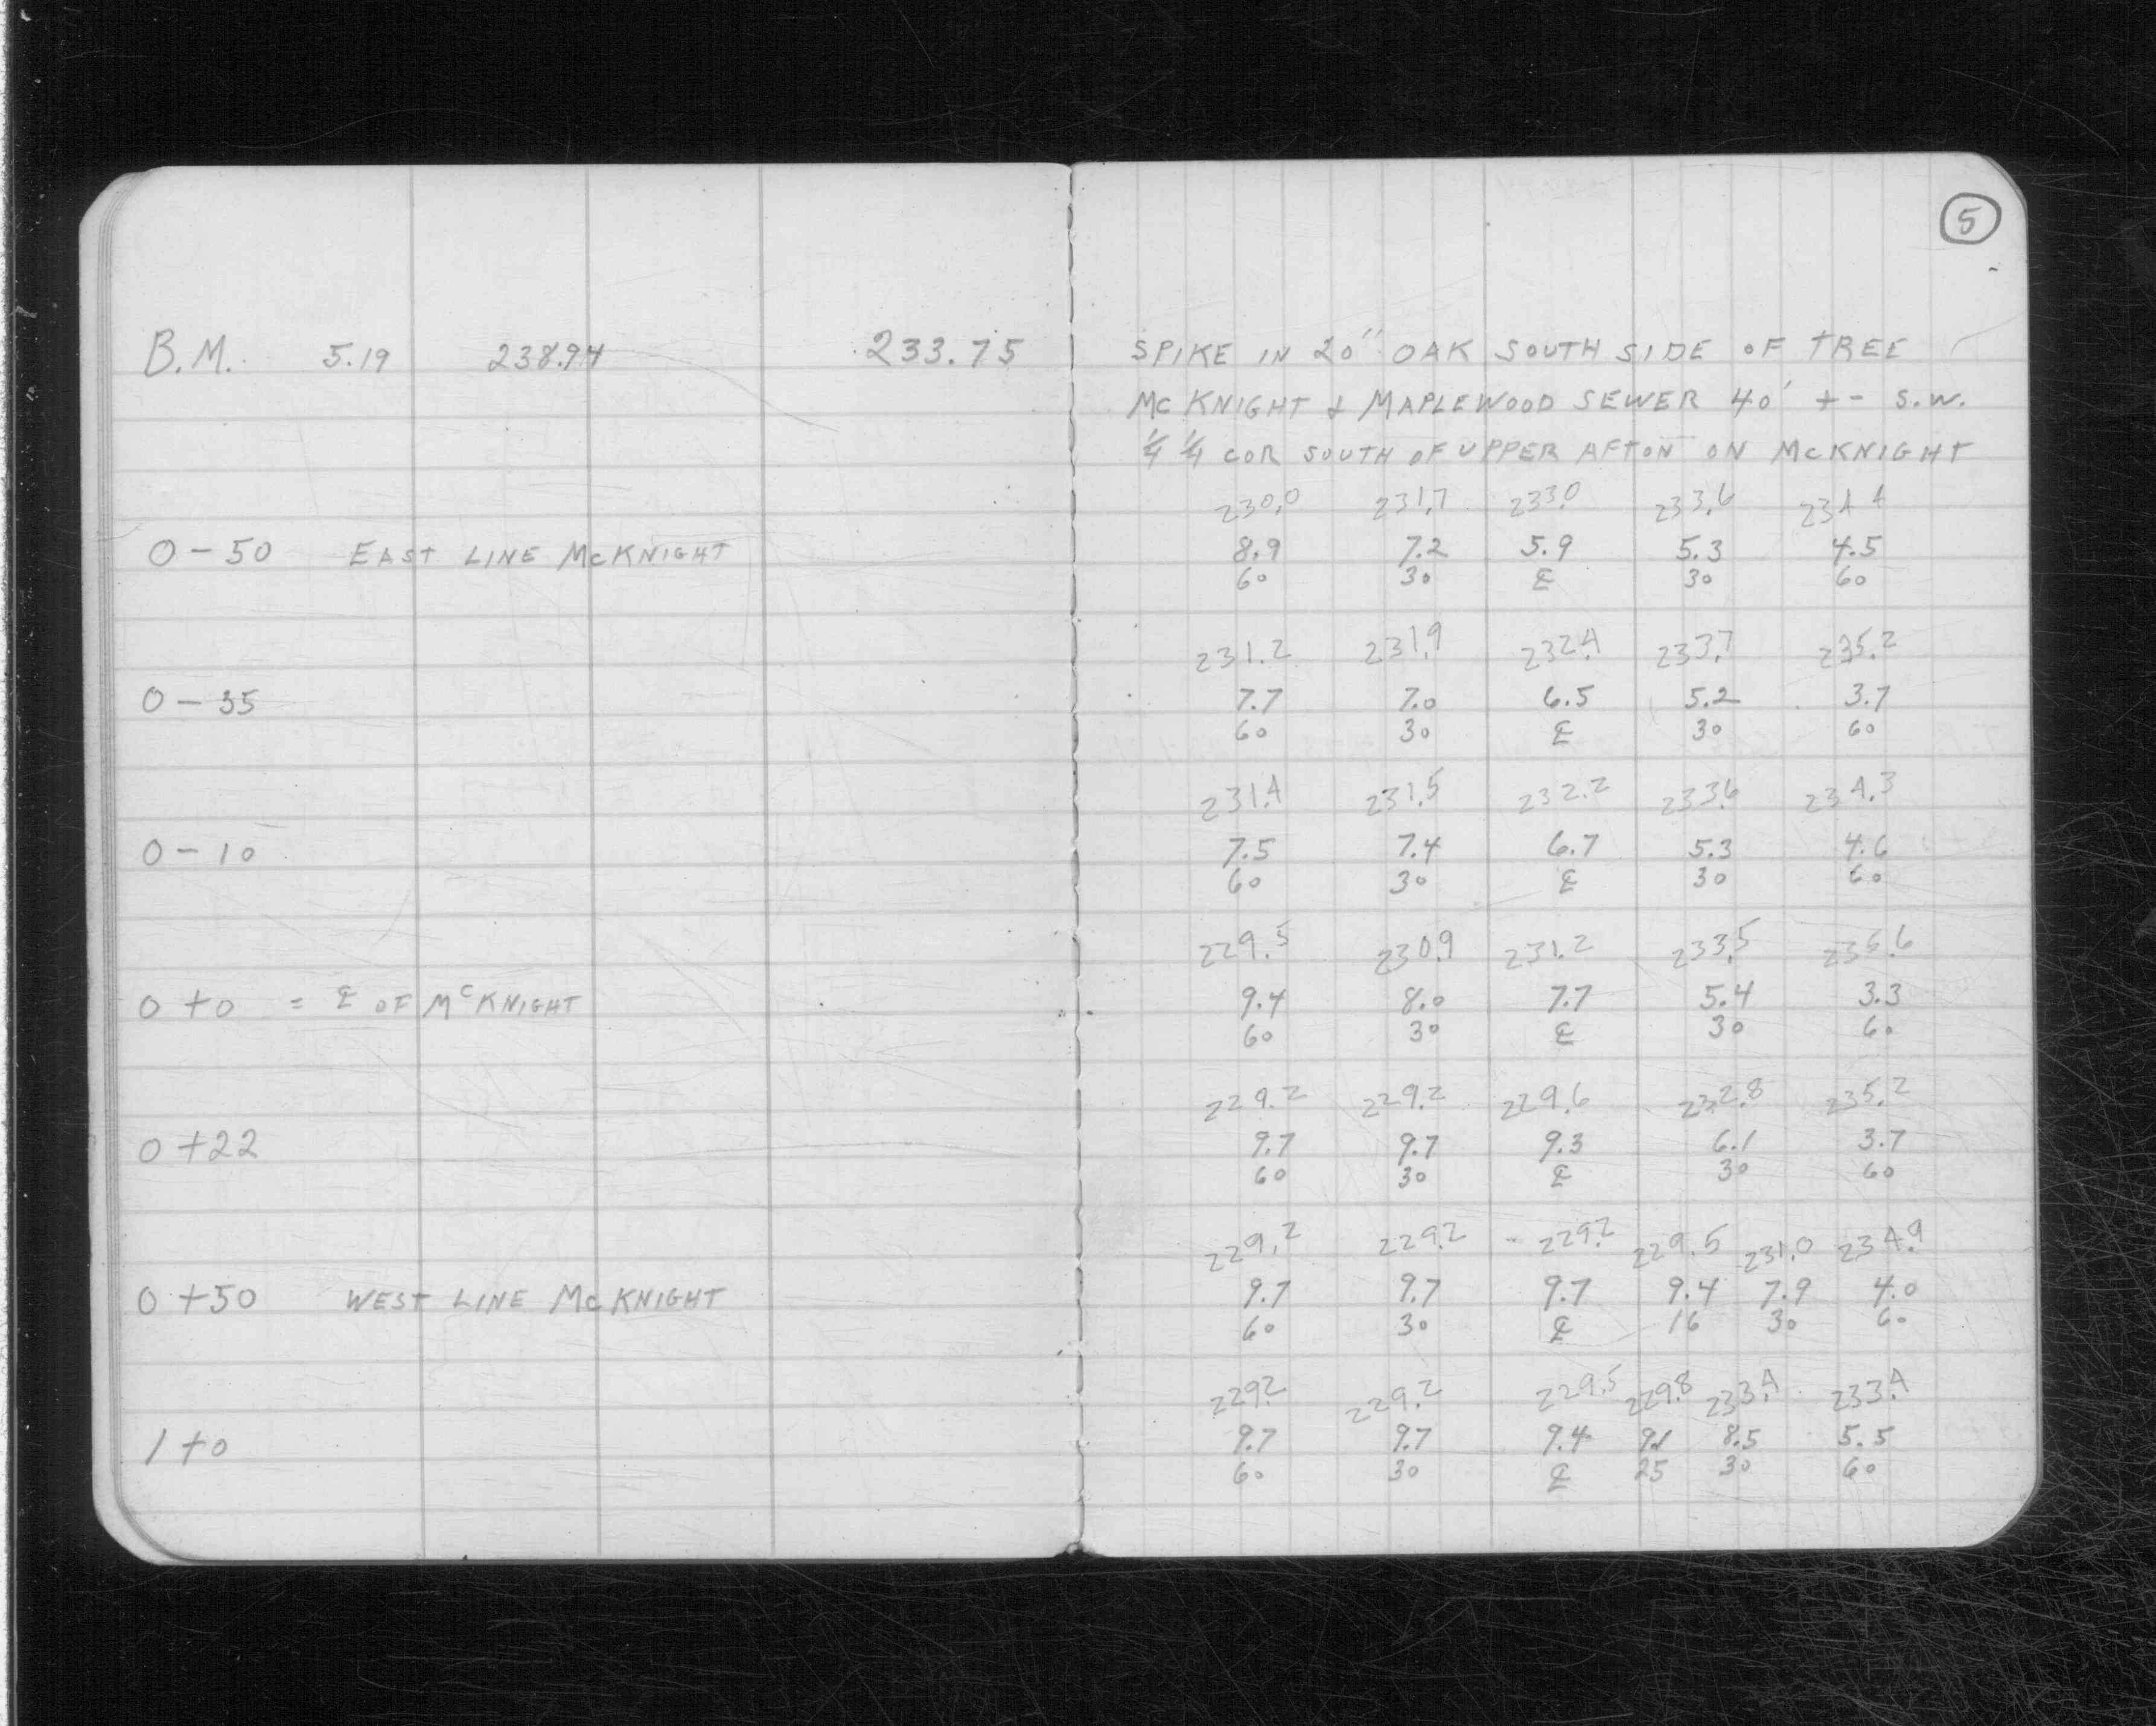 5
B.M. 5.19 238.94 233.75 SPIKE IN 20" OAK SOUTH SIDE OF TREE
McKNIGHT & MAPLEWOOD SEWER 40' +- S.W.
1/4 1/4 COR SOUTH OF UPPER AFTON ON McKNIGHT
230.0 231.7 233.0 233.6 234.4
0-50 EAST LINE McKNIGHT 8.9 7.2 5.9 5.3 4.5
60 30 ℄ 30 60
231.2 231.9 232.4 233.7 235.2
0-35 7.7 7.0 6.5 5.2 3.7
60 30 ℄ 30 60
231.4 231.5 232.2 233.6 234.3
0-10 7.5 7.4 6.7 5.3 4.6
60 30 ℄ 30 60
229.5 230.9 231.2 233.5 235.6
0+0 = ℄ OF McKNIGHT 9.4 8.0 7.7 5.4 3.3
60 30 ℄ 30 60
229.2 229.2 229.6 232.8 235.2
0+22 9.7 9.7 9.3 6.1 3.7
60 30 ℄ 30 60
229.2 229.2 229.2 229.5 231.0 234.9
0+50 WEST LINE McKNIGHT 9.7 9.7 9.7 9.4 7.9 4.0
60 30 ℄ 16 30 60
229.2 229.2 229.5 229.8 233.4 233.4
1+0 9.7 9.7 9.4 9.1 8.5 5.5
60 30 ℄ 25 30 60